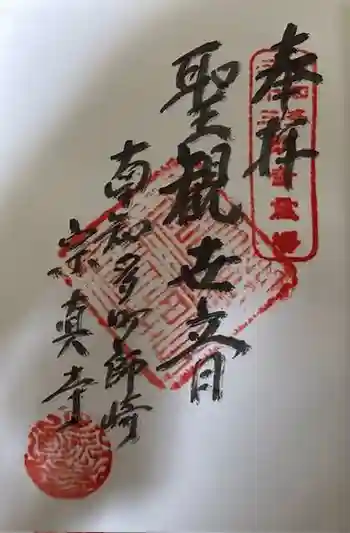 奉拝
聖観世音
南知多町師崎
宗真寺